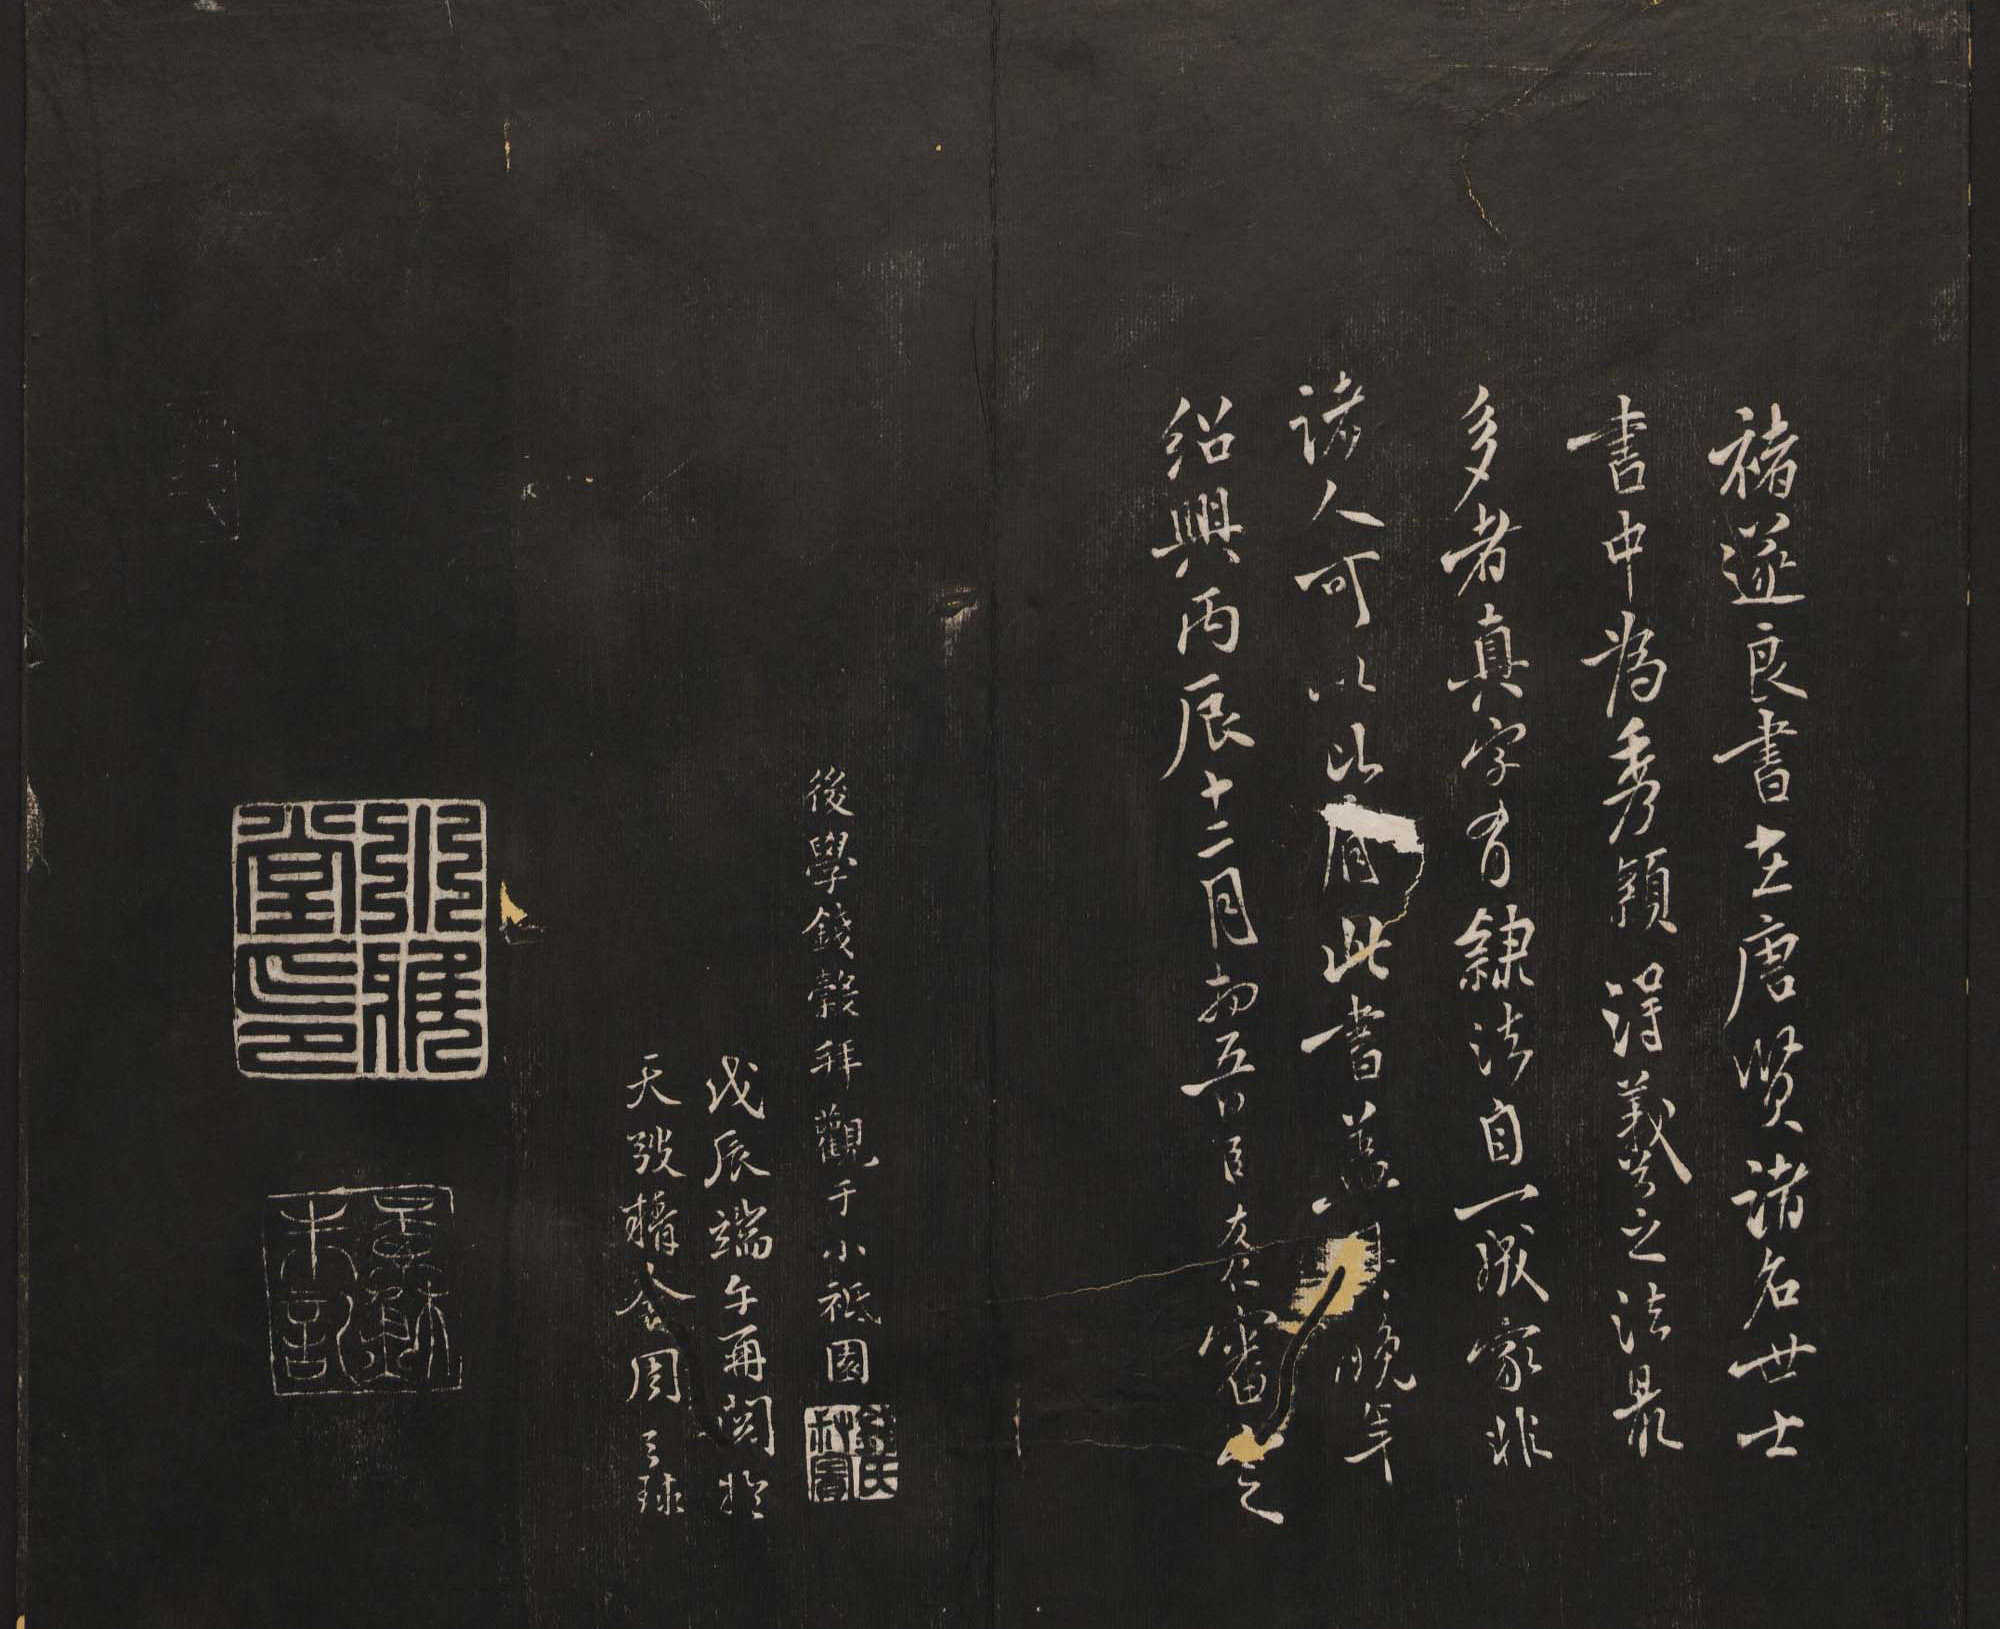 褚遂良書在唐賢諸名世士
書中為秀穎得羲獻之法最
多者真字有隸法自一成家非
諸人可以比肩此書蓋其晚年
紹興丙辰十二月初吉臣友仁審定
後學錢穀拜觀于小祇園
戊辰端午再閱於
天弢精舍周天球